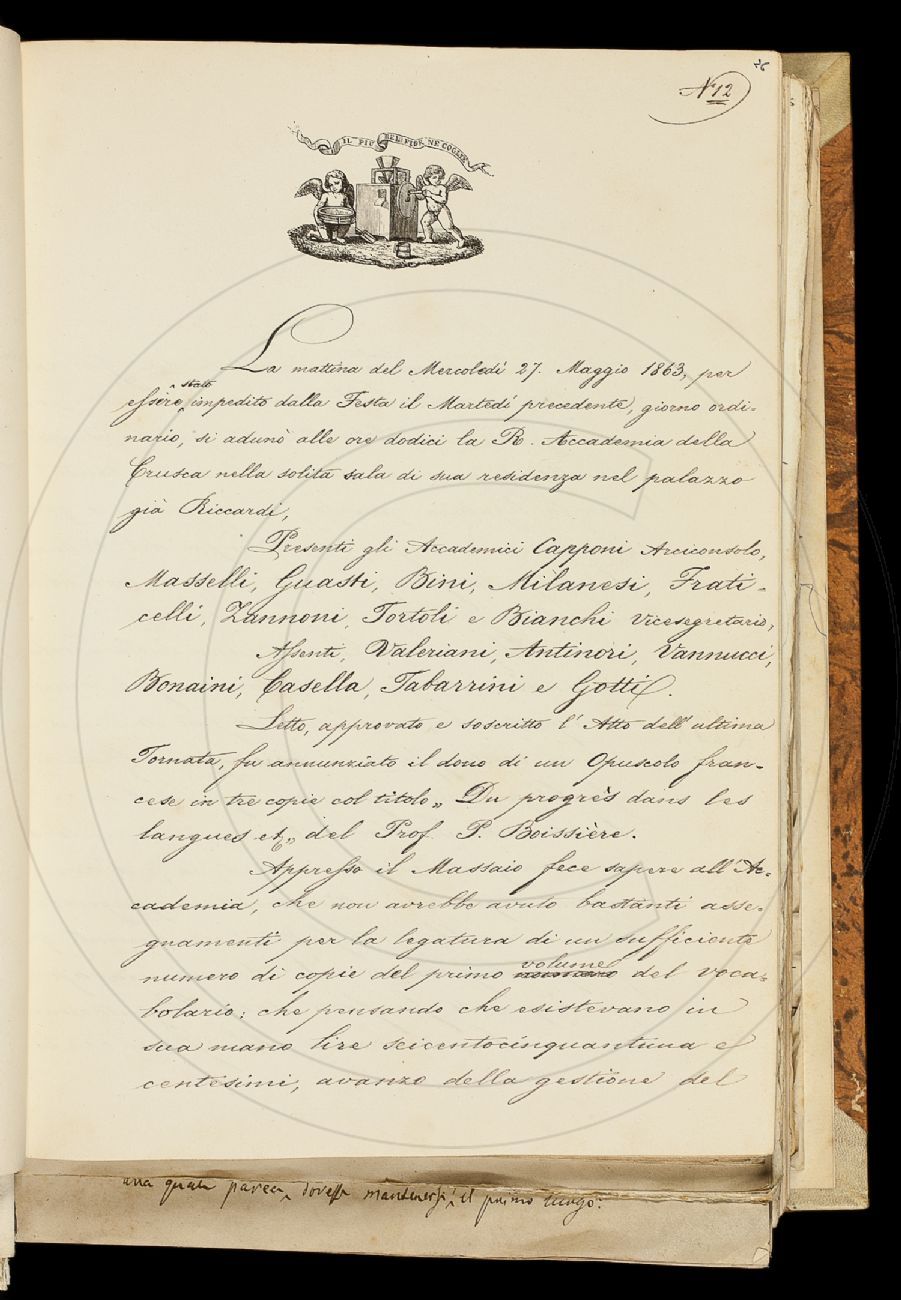 26
N 12
IL PIÙ BEL FIOR NE COGLIE
La mattina del Mercoledì 27. Maggio 1863, per
essere stato impedito dalla Festa il Martedì precedente, giorno ordi-
nario, si adunò alle ore dodici la R. Accademia della
Crusca nella solita sala di sua residenza nel palazzo
già Riccardi,
Presenti gli Accademici Capponi Arciconsolo,
Masselli, Guasti, Bini, Milanesi, Frati-
celli, Zannoni, Tortoli e Bianchi vicesegretario,
Assenti, Valeriani, Antinori, Vannucci,
Bonaini, Casella, Tabarrini e Gotti.
Letto, approvato e soscritto l'Atto dell'ultima
Tornata, fu annunziato il dono di un Opuscolo fran-
cese in tre copie col titolo „ Du progrès dans les
langues et„ del Prof. P. Boissière.
Appresso il Massaio fece sapere all'Ac-
cademia, che non avrebbe avuto bastanti asse-
gnamenti per la legatura di un sufficiente
numero di copie del primo numero volume del voca-
bolario; che pensando che esistevano in
sua mano lire seicentocinquantuna e
centesimi, avanzo della gestione del
una quale parea, dovesse mantenersi il primo luogo.